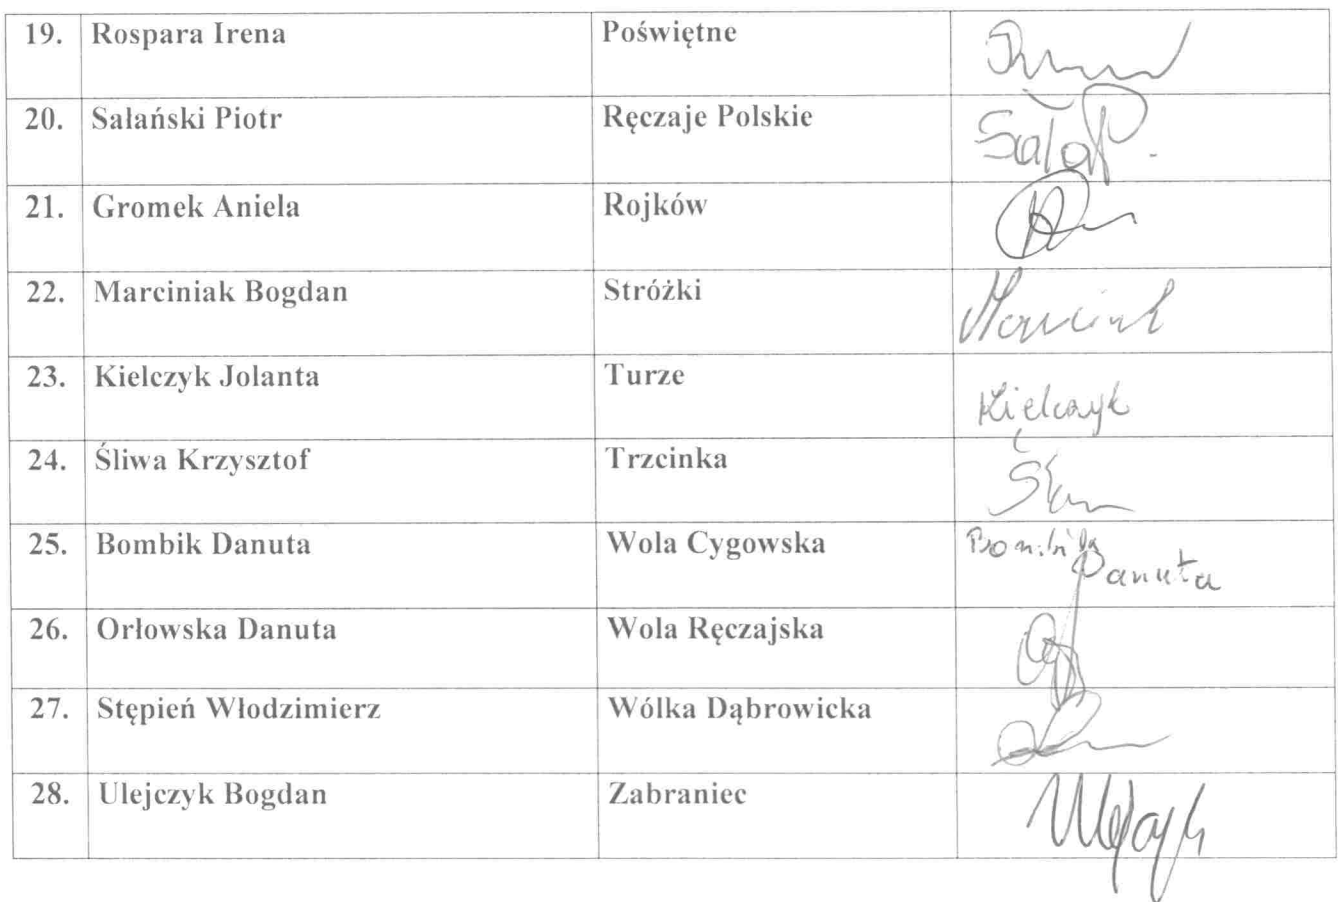 19. Rospara Irena Poświętne
20. Sałański Piotr Ręczaje Polskie
21. Gromek Aniela Rojków
22. Marciniak Bogdan Stróżki Marciniak
23. Kielczyk Jolanta Turze Kielczyk
24. Śliwa Krzysztof Trzcinka
25. Bombik Danuta Wola Cygowska Bombik Danuta
26. Orłowska Danuta Wola Ręczajska
27. Stępień Włodzimierz Wólka Dąbrowicka
28. Ulejczyk Bogdan Zabraniec Ulejczyk